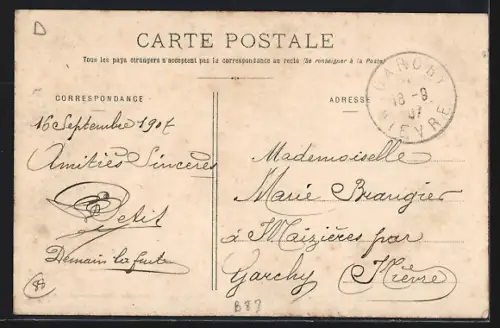 D
CARTE POSTALE
Tous les pays étrangers n'acceptent pas la correspondance au recto (Se renseigner à la Poste)
CORRESPONDANCE
ADRESSE
GARCHY
18 -9
07
NIEVRE
16 Septembre 1907
Amitiés Sincères
Petit
Demain la suite
Mademoiselle
Marie Brangier
à Maizières par
Garchy (Nièvre)
B87